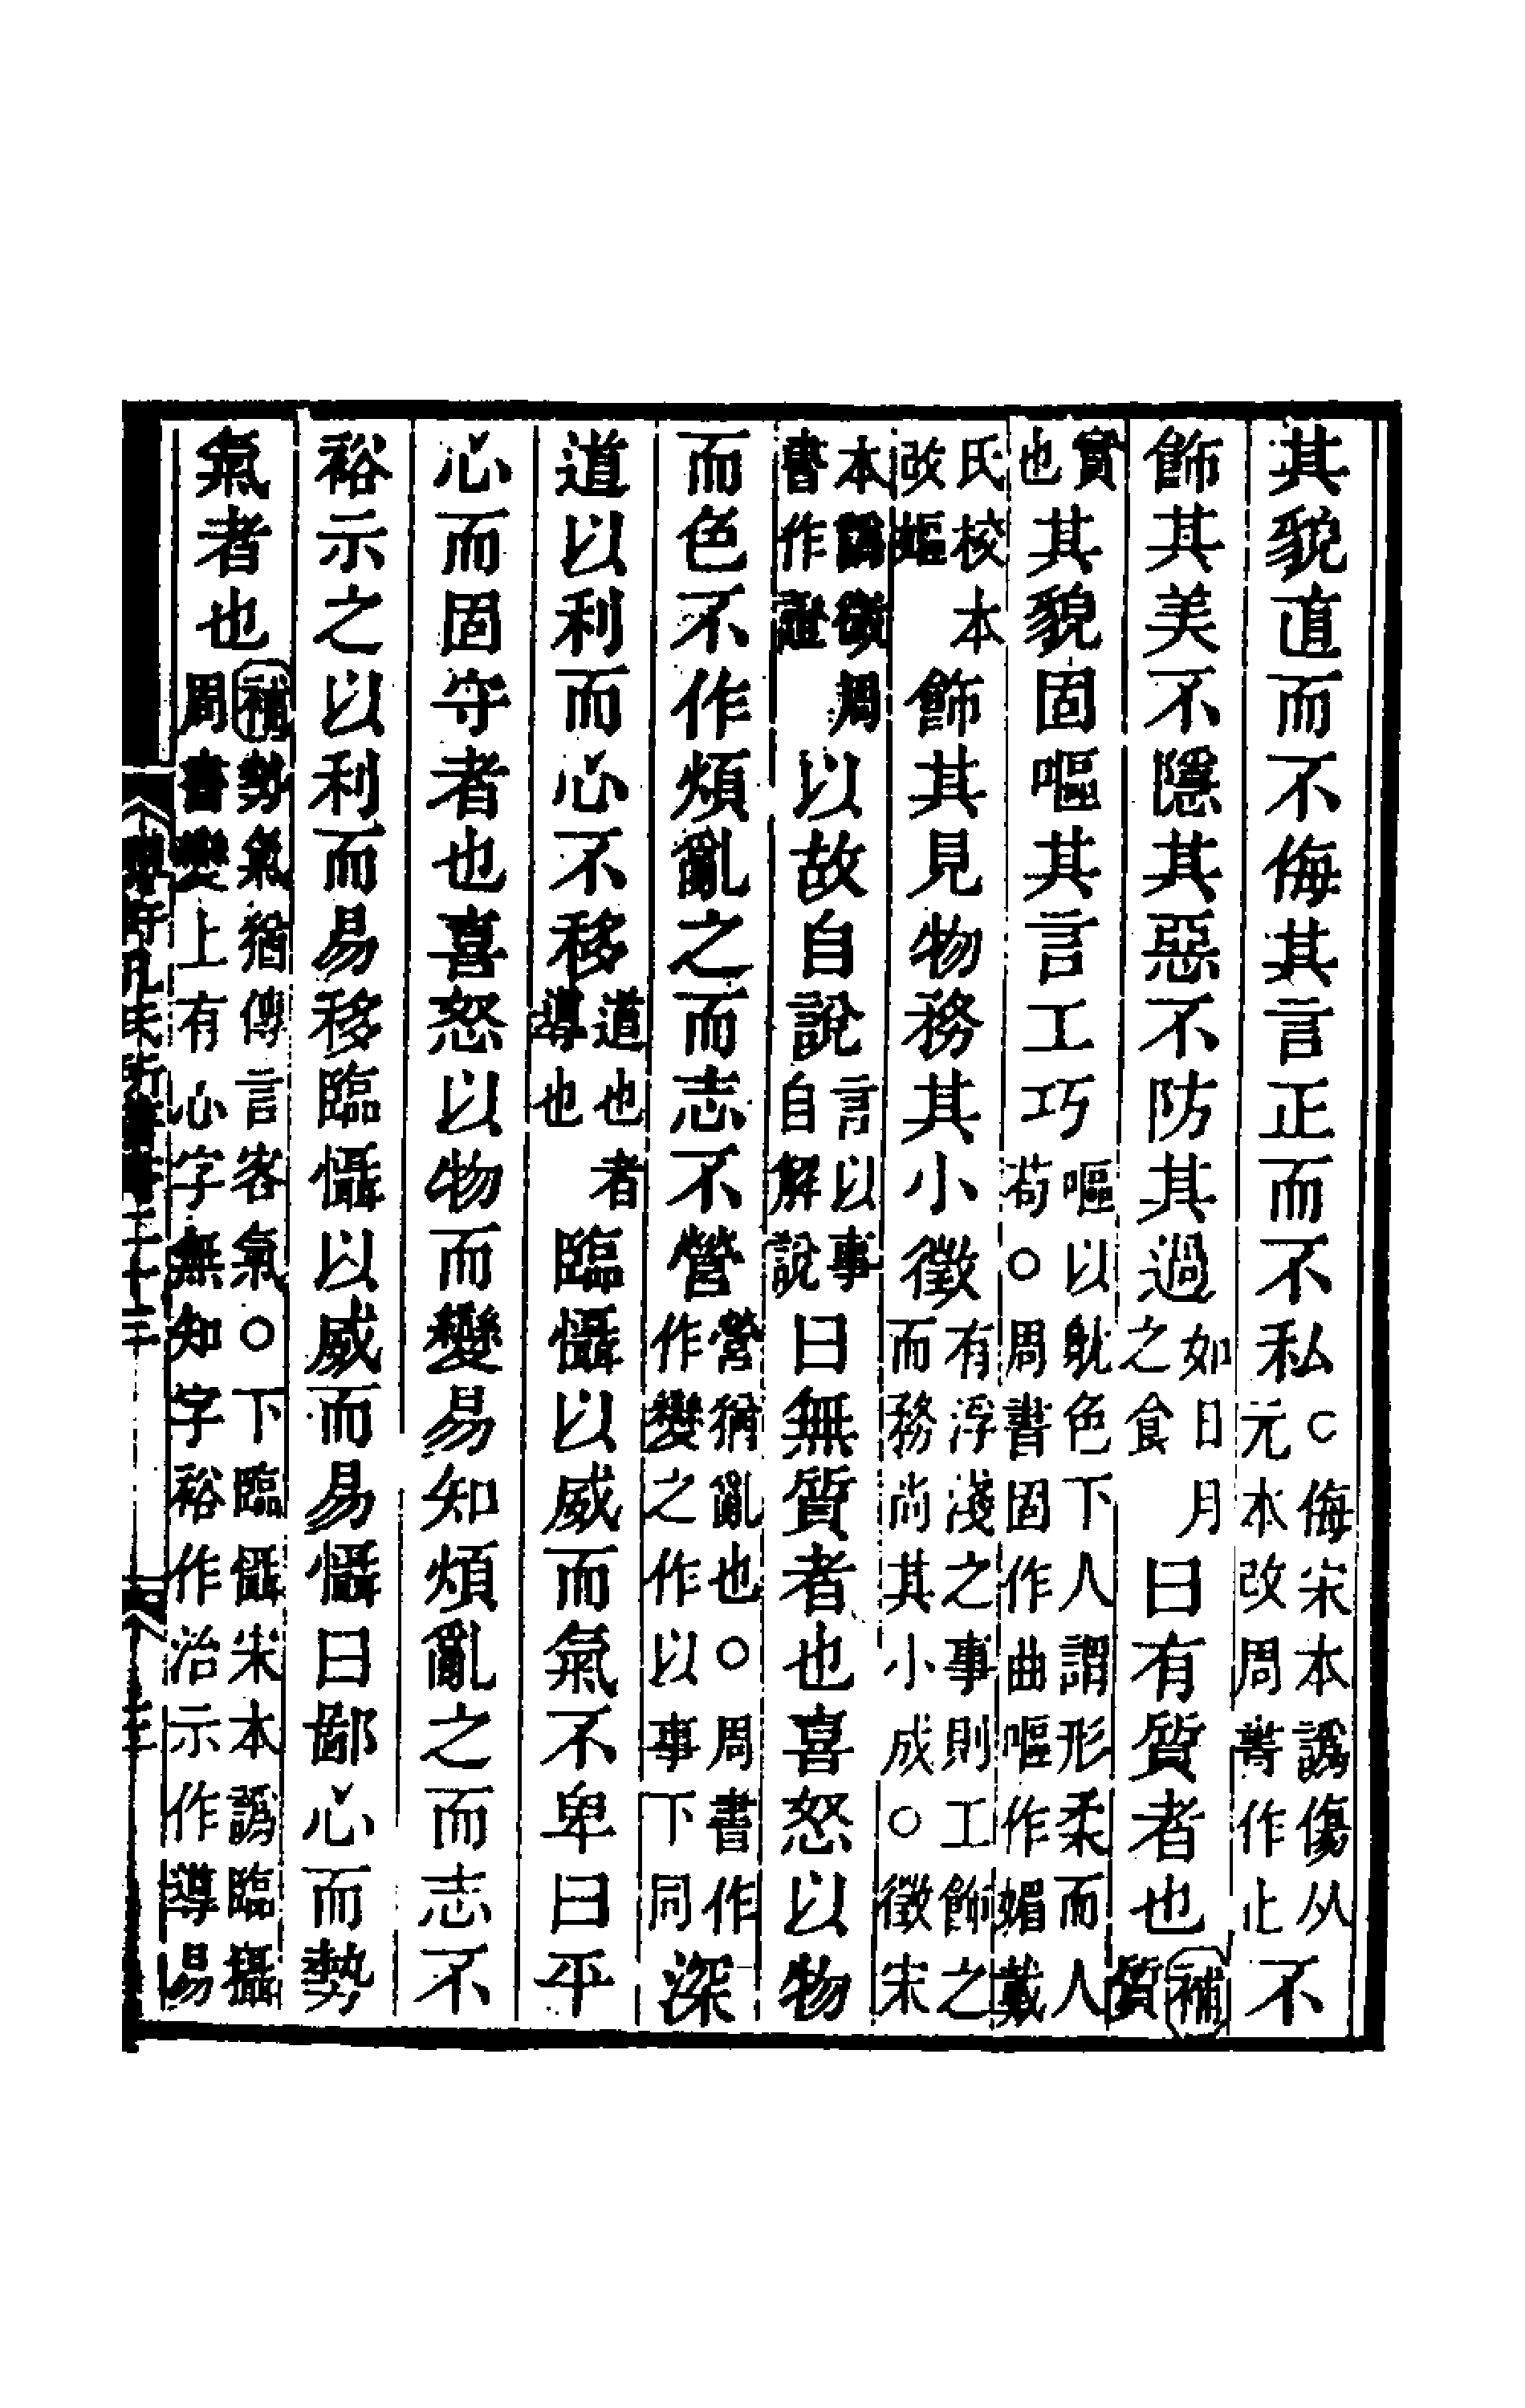 其貌直而不侮其言正而不私○侮宋本譌傷从元本改周書作止不
飾其美不隱其惡不防其過如日月之食曰有質者也補質
實也其貌固嘔其言工巧嘔以敓色下人謂形柔而人苟○周書固作曲嘔作媚戴
氏校本改嫗飾其見物務其小徵有浮淺之事則工飾之而務尚其小成○徵宋
本譌徵周書作證以故自說言以事自解說曰無質者也喜怒以物
而色不作煩亂之而志不營營猶亂也○周書作作變之作以事下同深
道以利而心不移道也者導也臨懾以威而氣不卑曰平
心而固守者也喜怒以物而變易知煩亂之而志不
裕示之以利而易移臨懾以威而易懾曰鄙心而勢
氣者也補勢氣猶傳言客氣○下臨懾宋本譌臨攝周書變上有心字無知字裕作治示作導易